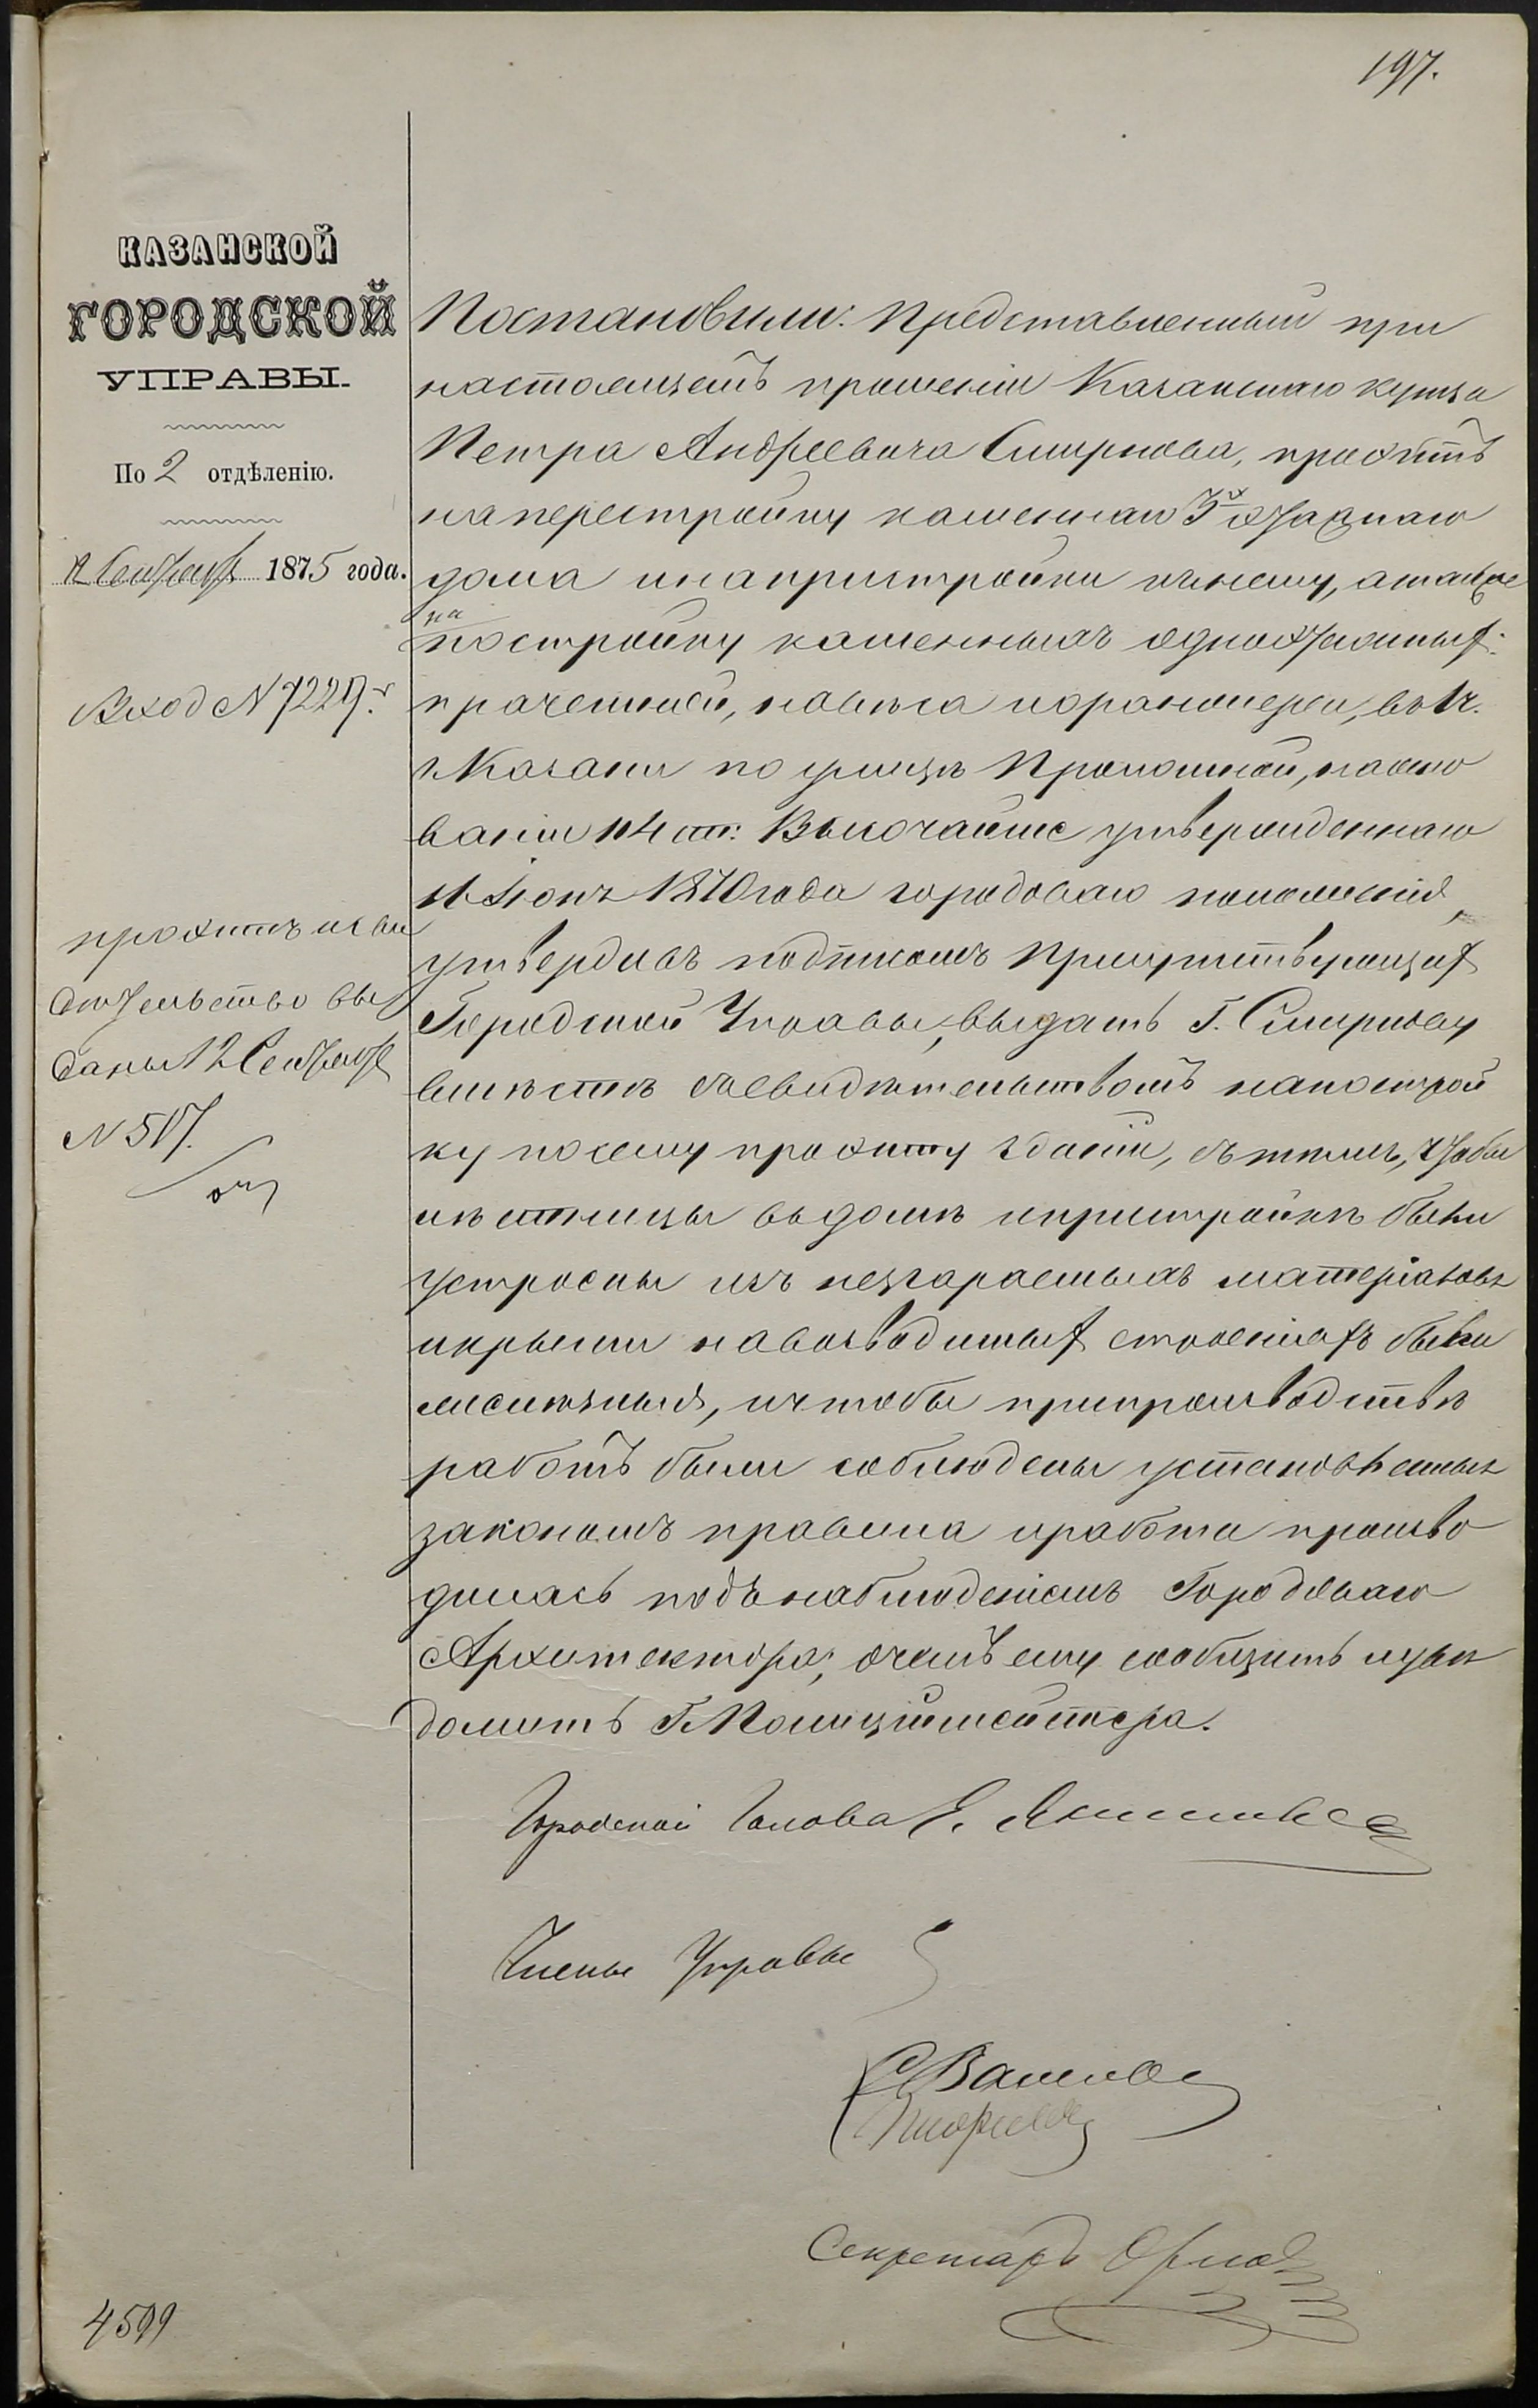 197.
КАЗАНСКОЙ
ГОРОДСКОЙ
УПРАВЫ.
По 2 отдѣленію.
12 Сентября 1875 года.
Вход N 7229.
проэктъ и сви
дѣтельство вы
даны 12 Сентября
N 517.
Постановили: Представленный при
настоящемъ прошеніи Казанскаго купца
Петра Андреевича Смирнова, проэктъ
на перестройку каменнаго 3х этажнаго
дома и на пристройки къ нему, а также
на
постройку каменныхъ одноэтажных:
прачешной, навѣса и оранжереи, въ 1 ч.
г. Казани по улицѣ Проломной, на осно
ваніи 114 ст: Высочайше утвержденнаго
16 Іюня 1870 года городоваго положенія,
утвердивъ подписомъ Присутствующих
Городской Управы, выдать Г. Смирнову
вмѣстѣ съ свидѣтельствомъ на построй
ку по сему проэкту зданій, съ тѣмъ, чтобы
лѣстницы въ домѣ и пристройкѣ были
устроены изъ несгараемыхъ матеріаловъ
и крыши на возводимых строеніяхъ были
желѣзныя, и чтобы при производствѣ
работъ были соблюдены установленныя
закономъ правила и работа произво
дилась подъ наблюденіемъ Городоваго
Архитектора; о чемъ ему сообщить и увѣ
домить Г. Полицiймейстера.
Городской Голова
Члены Управы
Секретарь Орлов
4599